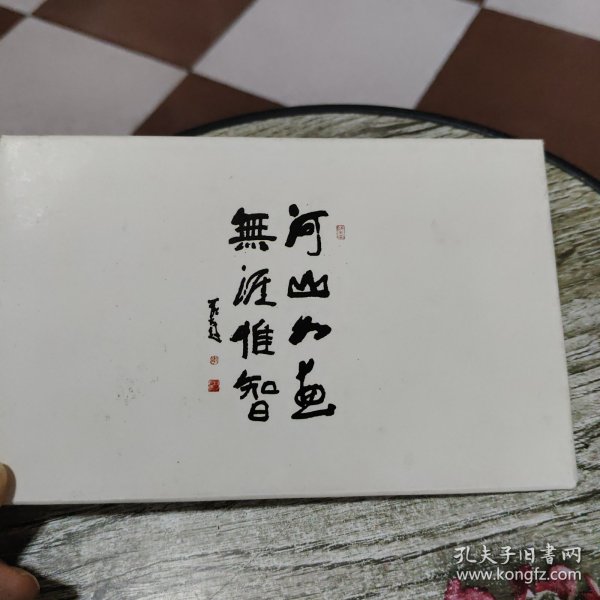 河山如画
無涯惟智
孔夫子旧書网
www.kongfz.com